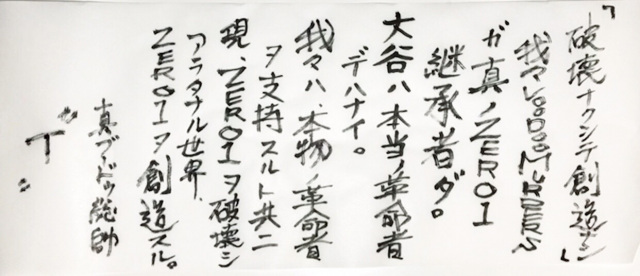 「破壊ナクシテ創造ナシ」
我々VooDoo-MURDERS
ガ真ノZERO1
継承者ダ。
大谷ハ本当ノ革命者
デハナイ。
我々ハ、本物ノ革命者
ヲ支持スルト共ニ
現、ZERO1ヲ破壊シ
アラタナル世界、
ZERO1ヲ創造スル。
真ブードゥ総帥
"T"